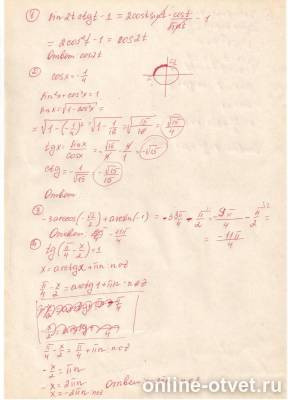 ① sin2t ctgt - 1 = 2cost sint · cost/sint - 1
= 2cos²t - 1 = cos2t
Ответ cos2t
② cosx = -1/4
sin²x + cos²x = 1
sinx = √1-cos²x =
= √1-(-1/4)² = √1-1/16 = √15/16 = √15/4
tgx = sinx/cosx = -√15/4 · 4/1 = -√15
ctg = -1/√15 = -√15/15
Ответ
③ -3arccos(-√2/2) + arcsin(-1) = -3 3π/4 - π/2 = -9π/4 - π/2 =
Ответ: -11π/4
= -11π/4
④ tg(π/4 - x/2) = 1
x = arctga + πn: n∈z
π/4 - x/2 = arctg1 + πn: n∈z
π/4 - x/2 = π/4 + πn: n∈z
-x/2 = πn
-x = 2πn
x = -2πn: n∈z
Ответ
online-otvet.ru